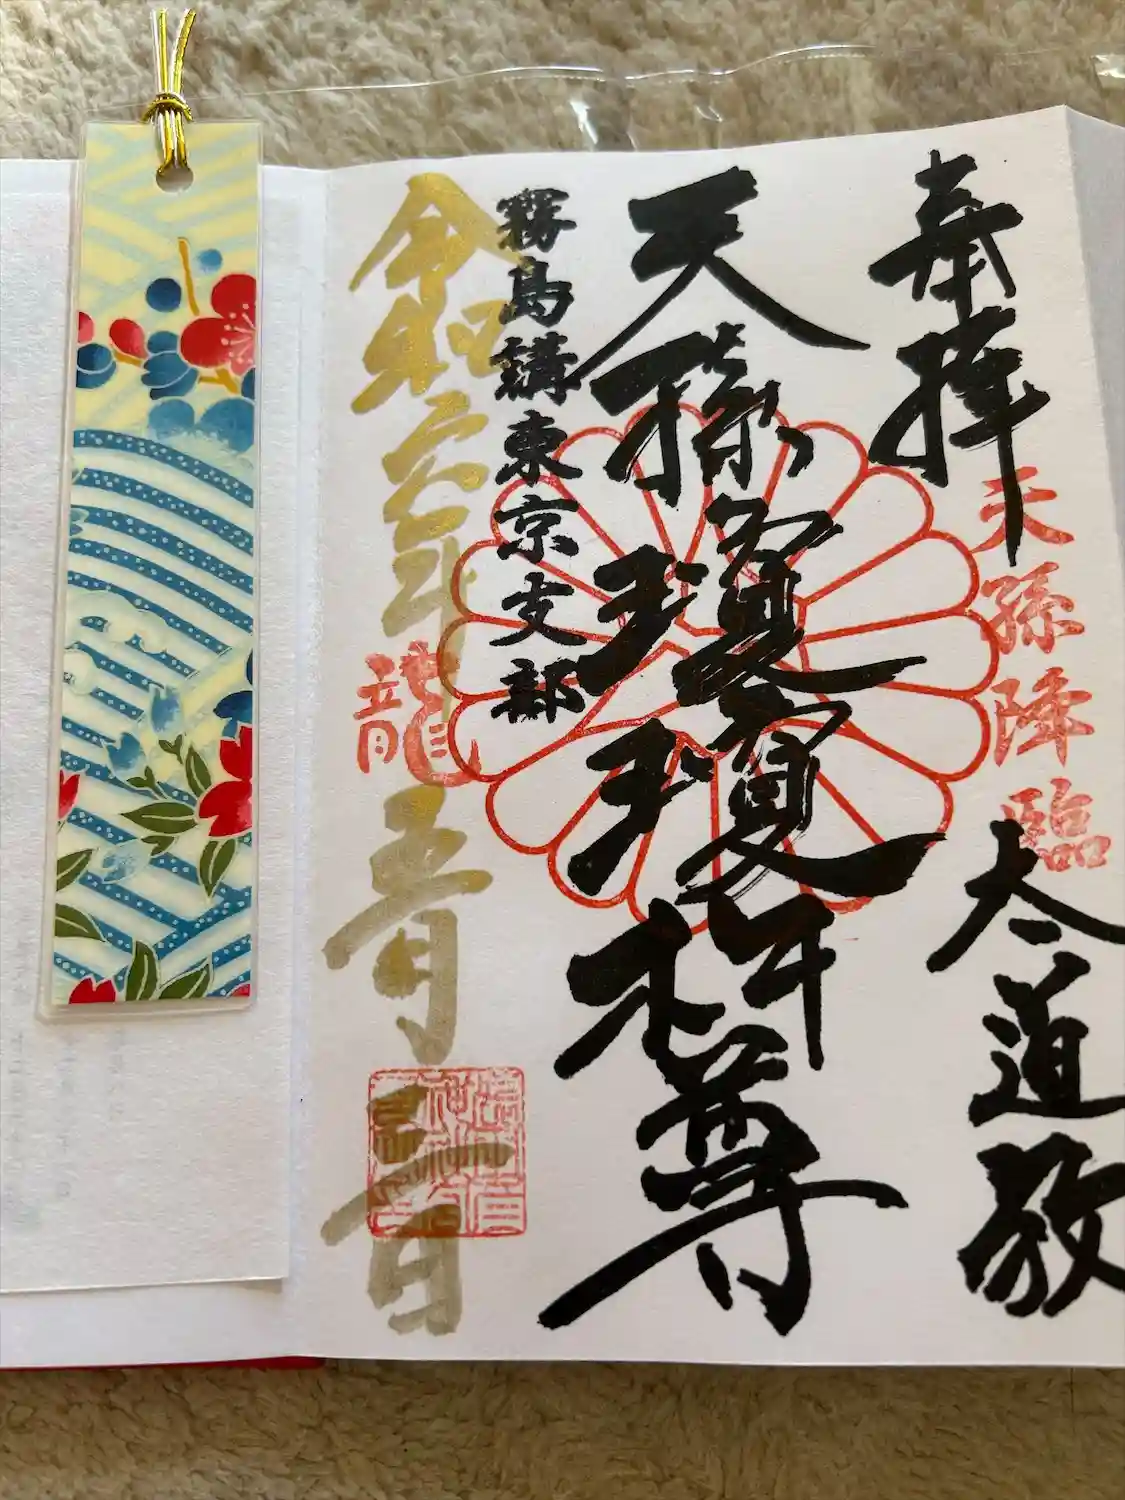 奉拝
天孫降臨
太道敬
天孫瓊瓊杵尊
霧島講東京支部
令和六年五月三日
龍